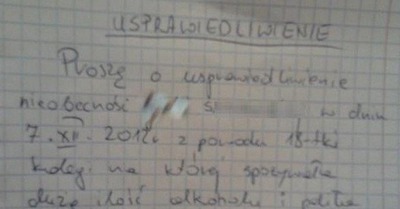 USPRAWIEDLIWIENIE
Proszę o usprawiedliwienie
nieobecność w dniu
7.XII.2012r z powodu 18-tki
kolegi na której spożywała
dużą ilość alkoholu i paliła